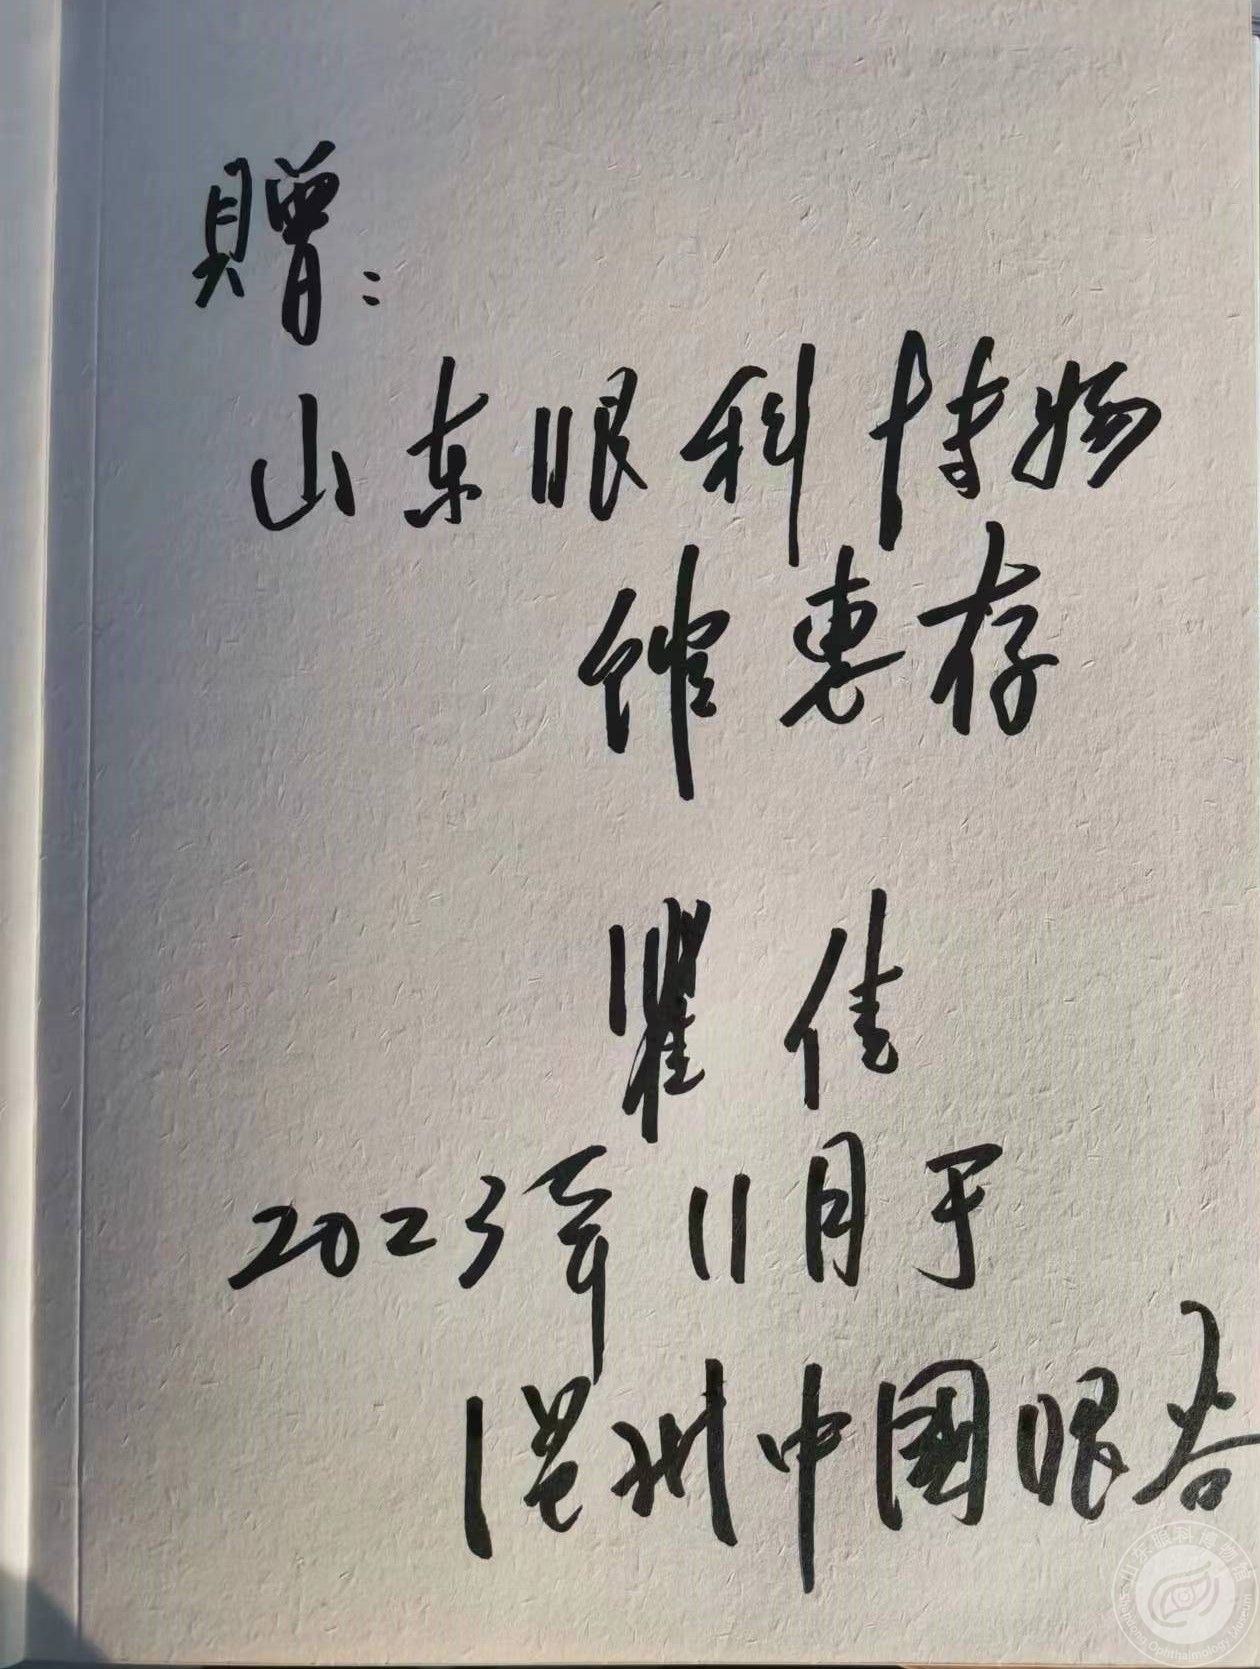 贈：
山东眼科博物
馆惠存
瞿佳
2023年11月于
温州中國眼谷
山东眼科博物馆
Shandong Ophthalmology Museum